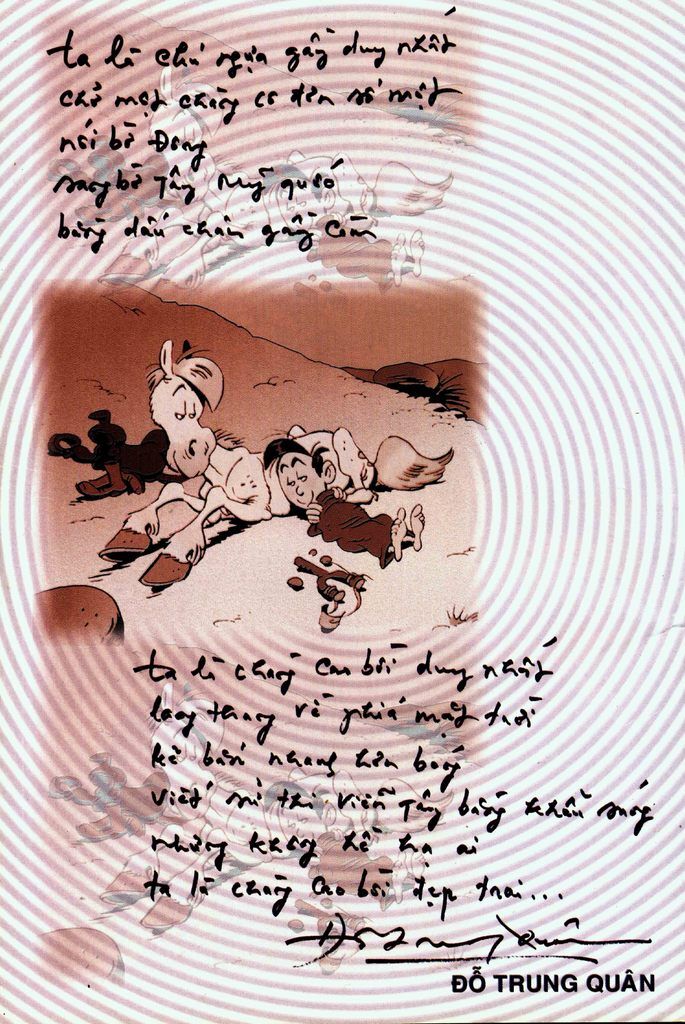 ta là chú ngựa gầy duy nhất
chở một chàng cô đơn số một
nơi bờ Đông
sang bờ Tây Mỹ quốc
bằng dấu chân gầy còm
ta là chàng cao bồi duy nhất
lang thang về phía mặt trời
kẻ bắn nhanh hơn bóng
viết sử thi viễn Tây bằng khẩu súng
nhưng không hề hạ ai
ta là chàng cao bồi đẹp trai...
Đỗ Trung Quân
ĐỖ TRUNG QUÂN